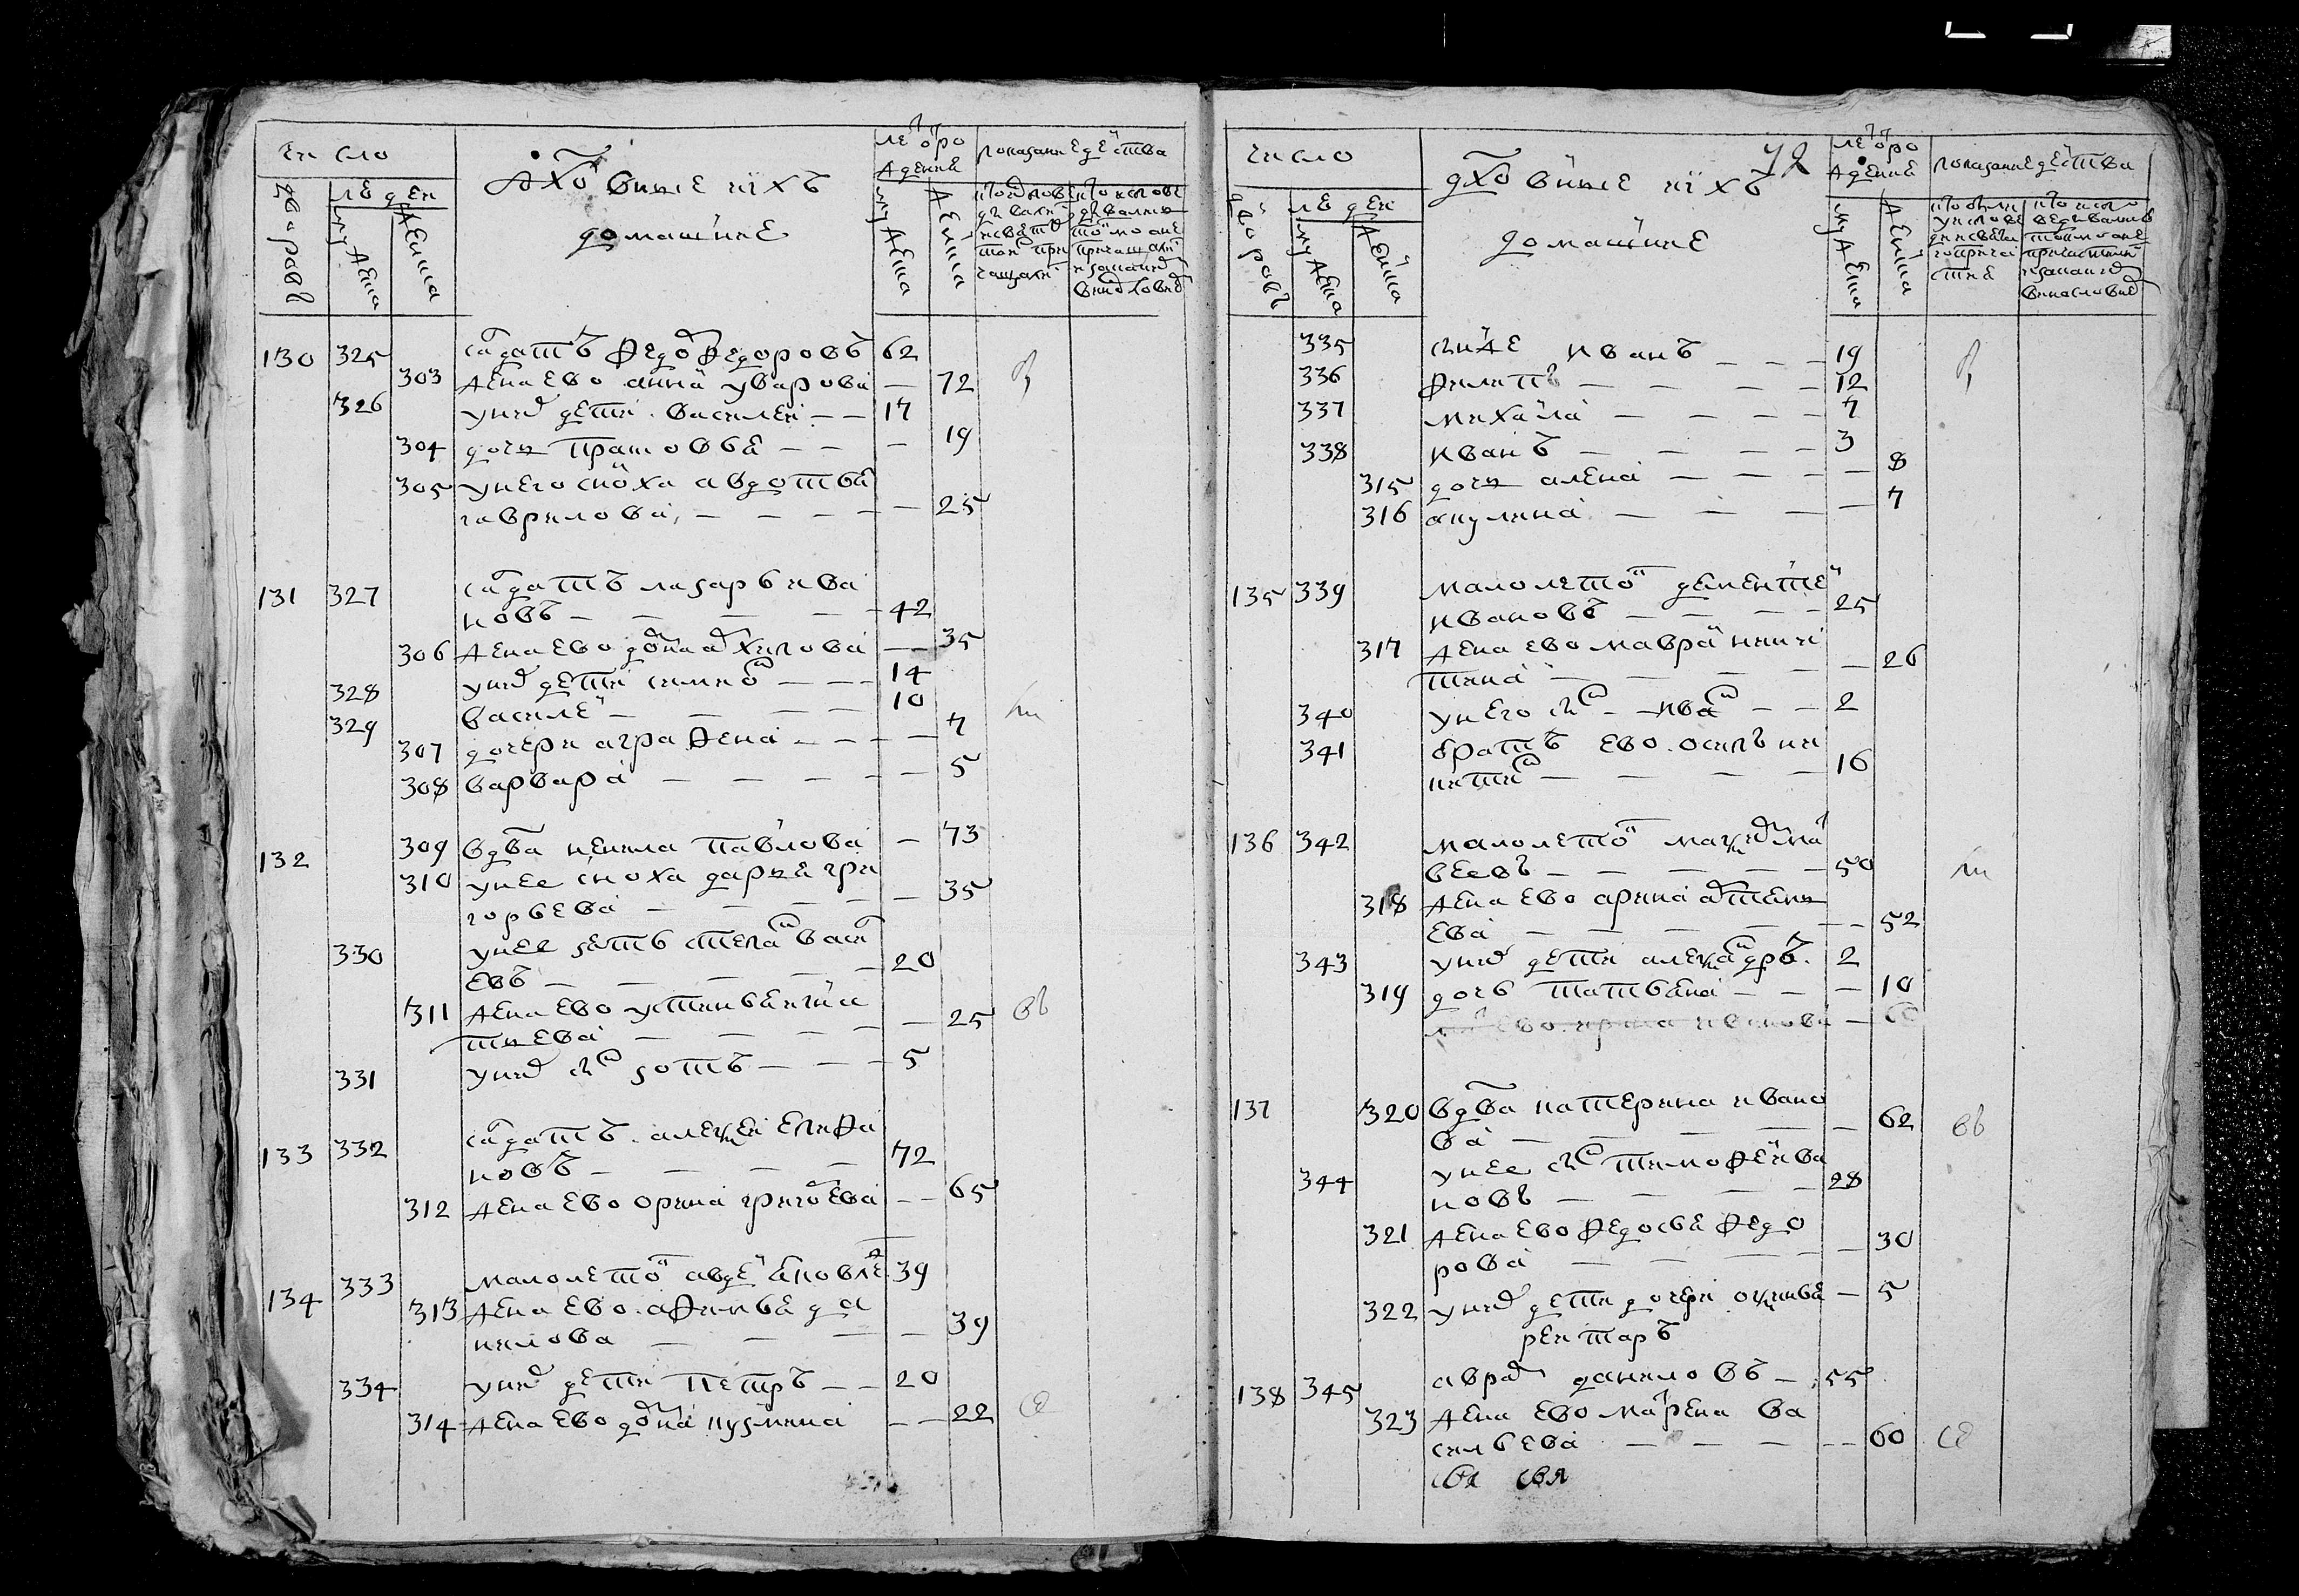 число
духовныя и ихъ
домашние
лѣ от ро
ждения
показание действа
дворовъ
людей
мужеска
женска
мужеска
женска
130 325 салдатъ федоръ федоровъ 62
303 жена ево анна уварова — 72
326 у них дети василей — — 17
304 дочь прасковья — — — 19
305 у него сноха авдотья
гаврилова — — — — 25
131 327 салдатъ лазарь ива
новъ — — — 42
306 жена ево домна архипова — — 35
328 у них дети симион — — — 14
329 василей — — — — 10
307 дочери аграфена — — — — 7
308 варвара — — — — — 5
132 309 вдова ненила павлова — 73
310 у нее сноха дарья гри
горьева — — — — — 35
330 у нее зять степан васил
евъ — — — — 20
311 жена ево устинья игна
тьева — — — — — 25
331 у них сынъ зотъ — — — 5
133 332 салдатъ алексей елифа
новъ — — — — 72
312 жена ево орина григорьева — — 65
134 333 малолетной авдей яковле 39
313 жена ево афимья да
нилова — — — — 39
334 у них дети петръ — — 20
314 жена ево домна кузмина — — 22
число
72
духовныя и ихъ
домашние
лѣ от ро
ждение
показание действа
дворовъ
людей
мужеска
женска
мужеска
женска
335 иванъ — — — 19
336 филипъ — — — — 12
337 михайла — — — — 7
338 иванъ — — — — 3
315 дочь алена — — — — 8
316 акулина — — — — 7
135 339 малолетной дементей
ивановъ — — — — 25
317 жена ево мавра ники
тина — — — — — 26
340 у него сынъ — — иван — — 2
341 братъ ево осипъ ни
китин — — — — 16
136 342 малолетной максим мат
веевъ — — — — — 50
318 жена ево арина
ева — — — — — 52
343 у них дети александръ 2
319 дочь татьяна — — — 10
ево ирина иванова —
137 320 вдова катерина ивано
ва — — — — — 62
344 у нее сынъ тимофей ива
новъ — — — — 28
321 жена ево федосья федо
рова — — — — 30
322 у них дети дочери оксинья — 5
рентаръ
138 345 аврам даниловъ — 55
323 жена ево марена ва
сильева — — — — — 60